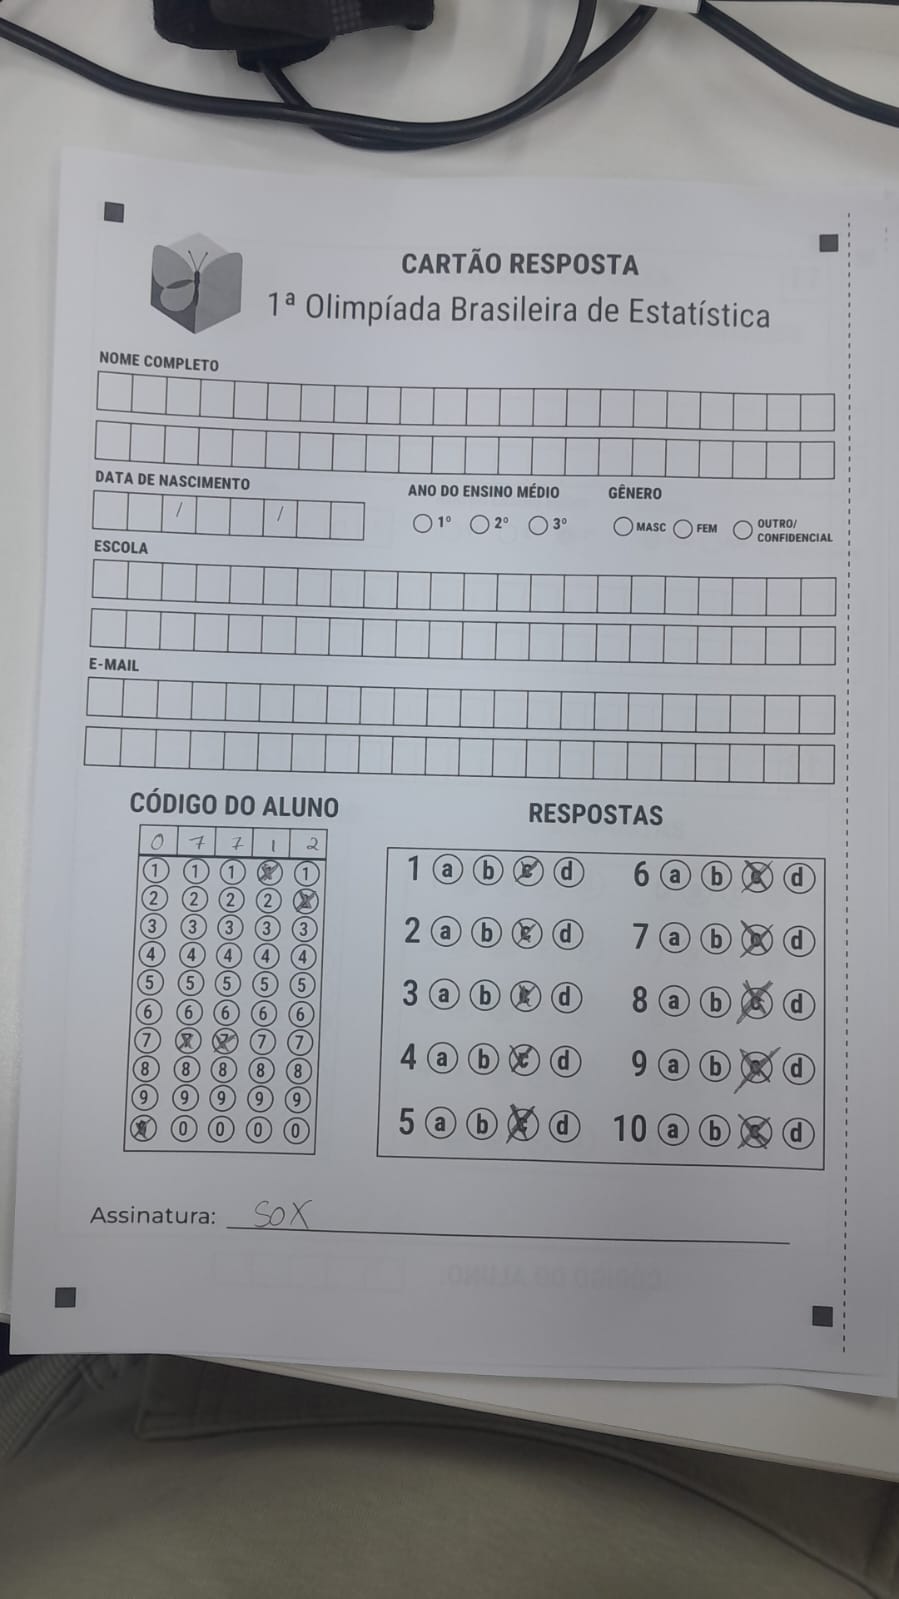 CARTÃO RESPOSTA
1ª Olimpíada Brasileira de Estatística
NOME COMPLETO
DATA DE NASCIMENTO
/ /
ANO DO ENSINO MÉDIO
1º 2º 3º
GÊNERO
MASC FEM OUTRO/
CONFIDENCIAL
ESCOLA
E-MAIL
CÓDIGO DO ALUNO
0 7 7 1 2
1 1 1 1 1
2 2 2 2 2
3 3 3 3 3
4 4 4 4 4
5 5 5 5 5
6 6 6 6 6
7 7 7 7 7
8 8 8 8 8
9 9 9 9 9
0 0 0 0 0
RESPOSTAS
1 a b c d
2 a b c d
3 a b c d
4 a b c d
5 a b c d
6 a b c d
7 a b c d
8 a b c d
9 a b c d
10 a b c d
Assinatura: SOX
CÓDIGO DO ALUNO: